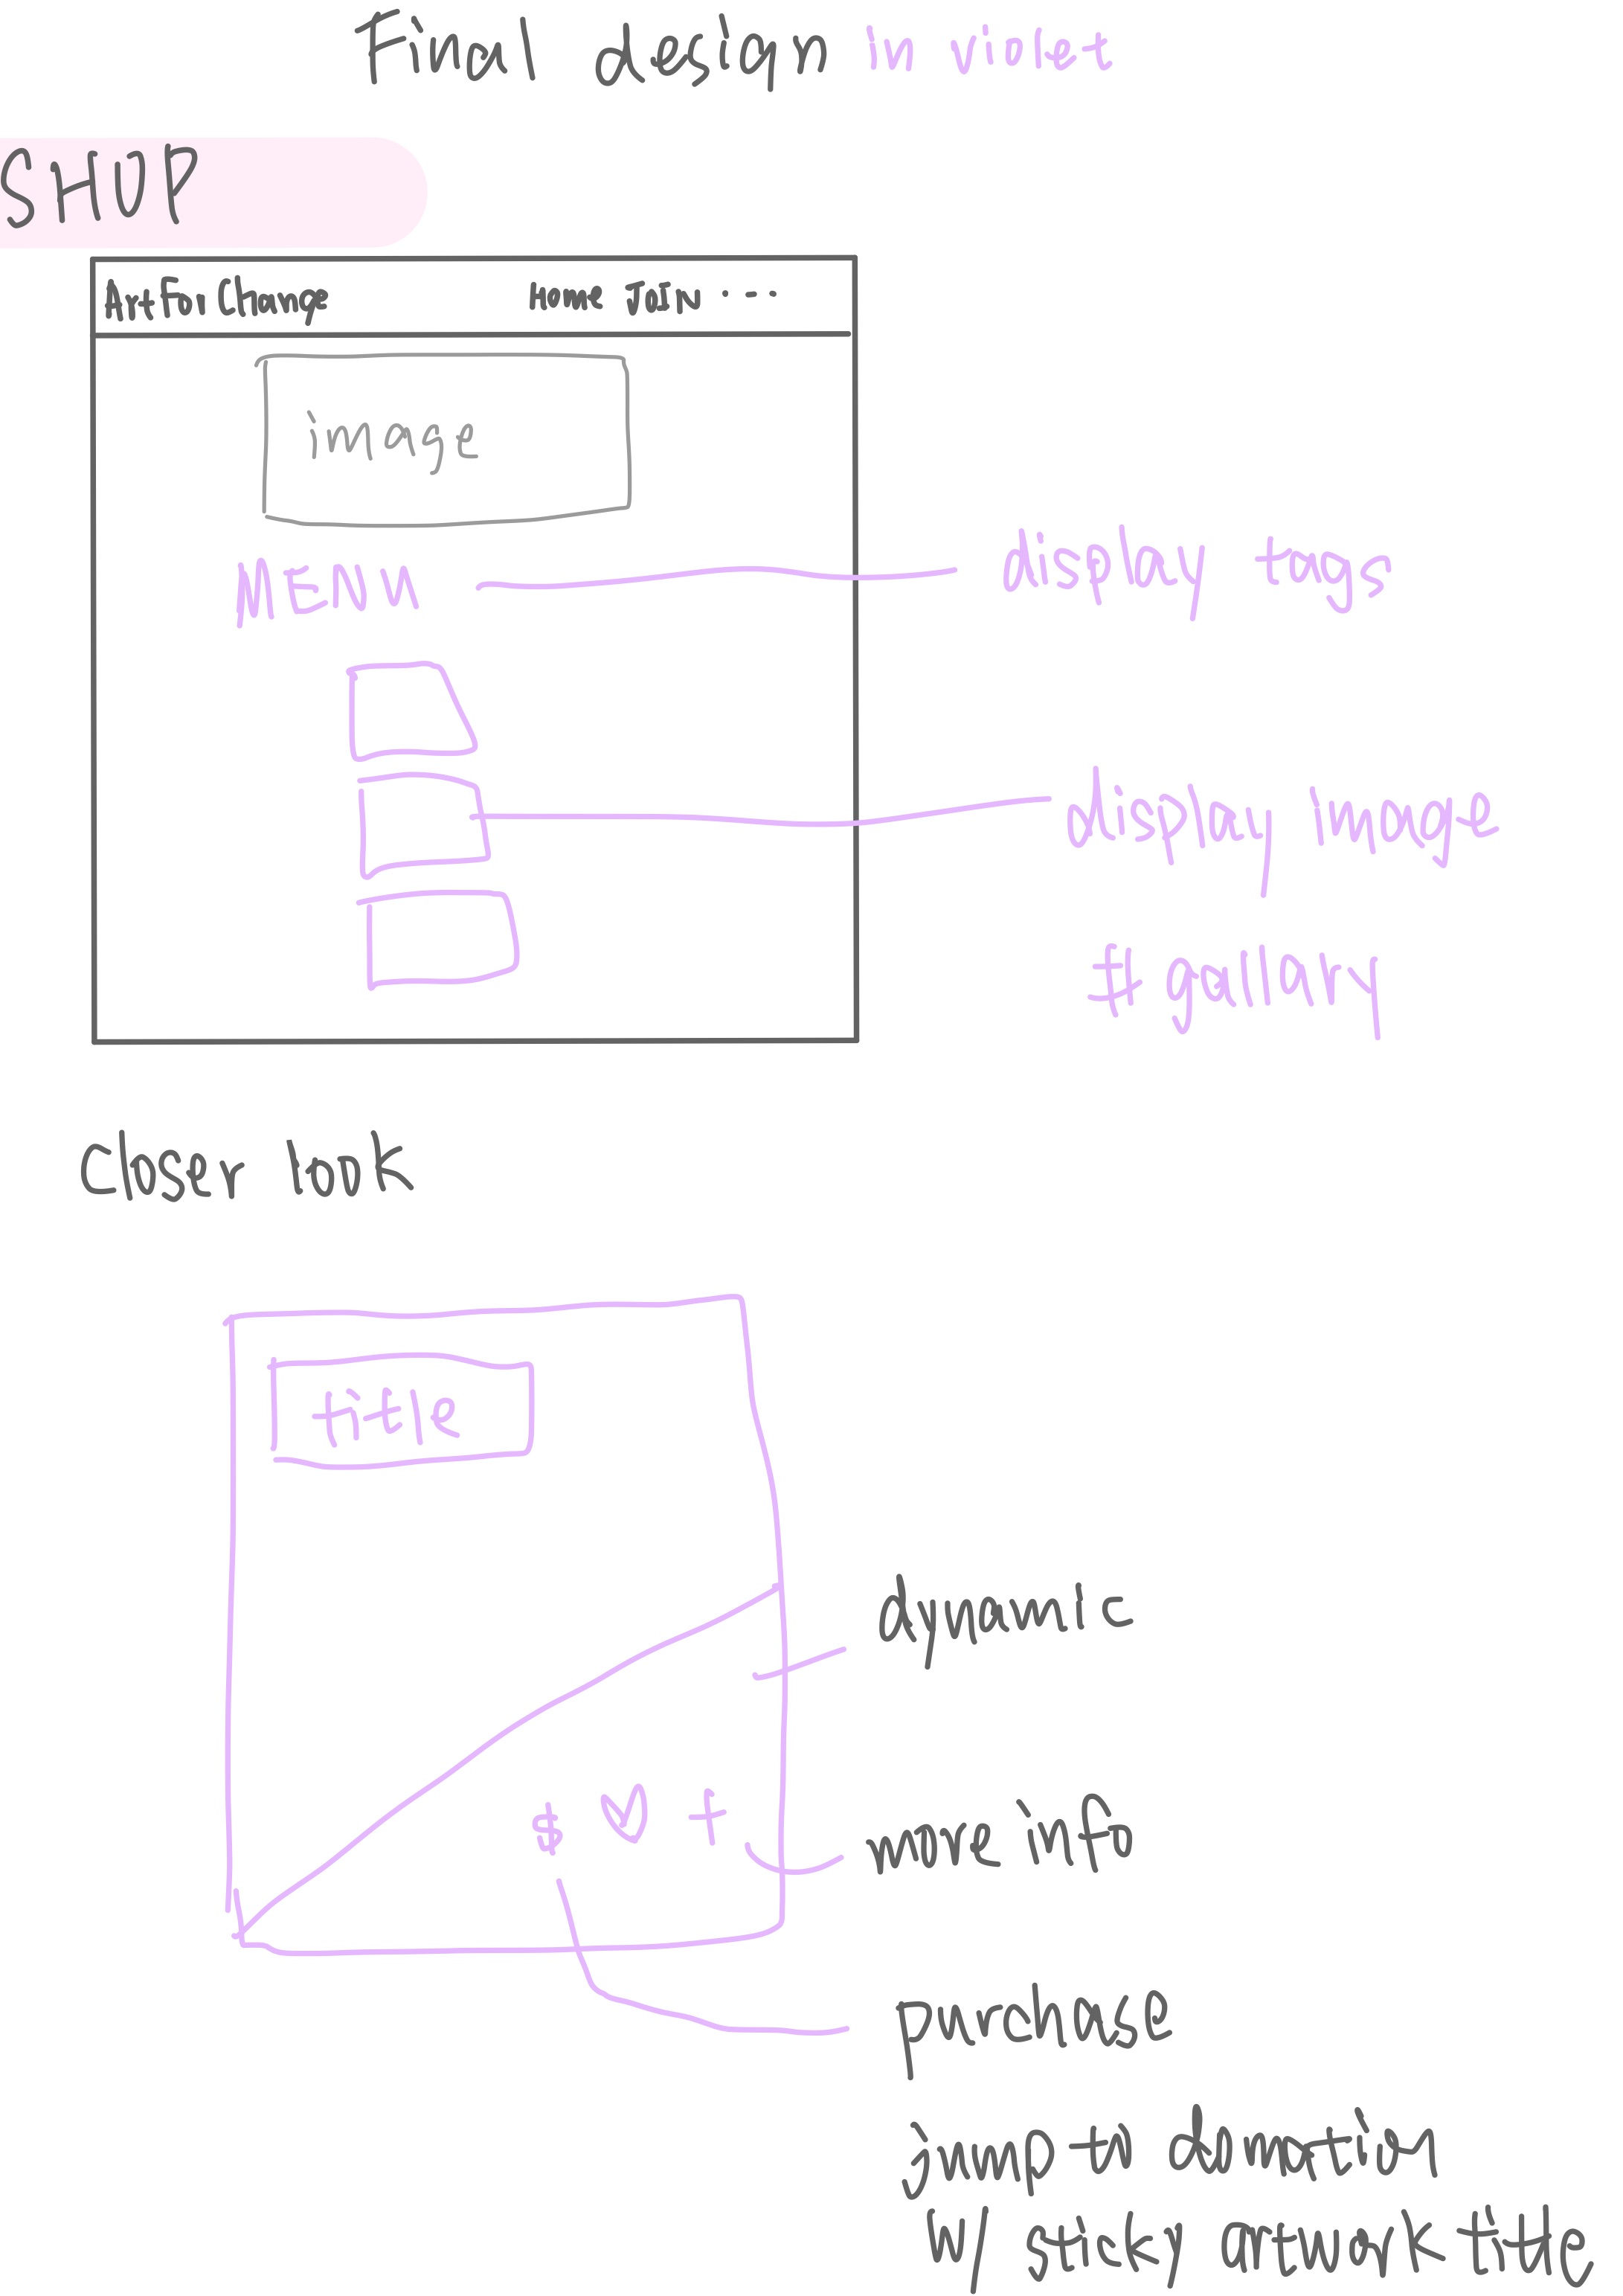 Final design in violet
SHOP
ArtForChange Home Join ...
image
MENU
display tags
display image
# gallary
Closer look
title
dynamic
$ ♡ +
more info
purchase
jump to donation
w/ sticky artwork title